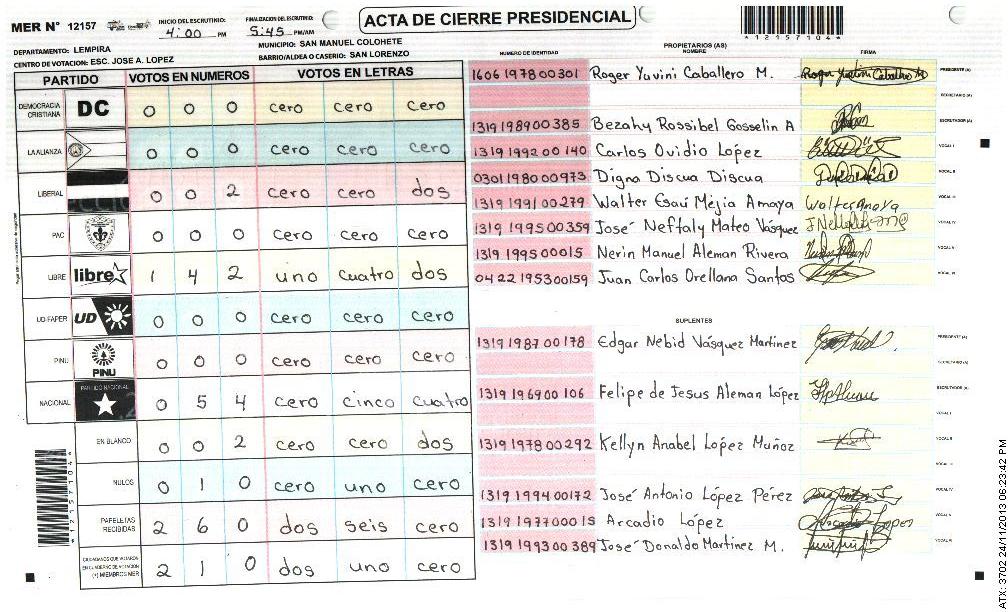 MER N° 12157
INICIO DEL ESCRUTINIO: 4:00 PM
FINALIZACION DEL ESCRUTINIO: 5:45 PM/AM
ACTA DE CIERRE PRESIDENCIAL
*12157104*
DEPARTAMENTO: LEMPIRA
MUNICIPIO: SAN MANUEL COLOHETE
CENTRO DE VOTACION: ESC. JOSE A. LOPEZ
BARRIO/ALDEA O CASERIO: SAN LORENZO
PARTIDO VOTOS EN NUMEROS VOTOS EN LETRAS
DEMOCRACIA CRISTIANA DC 0 0 0 cero cero cero
LA ALIANZA 0 0 0 cero cero cero
LIBERAL 0 0 2 cero cero dos
PAC 0 0 0 cero cero cero
LIBRE libre 1 4 2 uno cuatro dos
UD-FAPER UD 0 0 0 cero cero cero
PINU PINU 0 0 0 cero cero cero
NACIONAL PARTIDO NACIONAL 0 5 4 cero cinco cuatro
EN BLANCO 0 0 2 cero cero dos
NULOS 0 1 0 cero uno cero
PAPELETAS RECIBIDAS 2 6 0 dos seis cero
CIUDADANOS QUE VOTARON EN CUADERNO DE VOTACION (+) MIEMBROS MER 2 1 0 dos uno cero
*12157104*
PROPIETARIOS (AS)
NUMERO DE IDENTIDAD NOMBRE FIRMA
1606 1978 00301 Roger Yuvini Caballero M. PRESIDENTE (A)
SECRETARIO (A)
1319 1989 00385 Bezahy Rossibel Gosselin A ESCRUTADOR (A)
1319 1992 00140 Carlos Ovidio López VOCAL I
0301 1980 00973 Digna Discua Discua VOCAL II
1319 1991 00279 Walter Esaú Mejia Amaya VOCAL III
1319 1995 00359 José Neftaly Mateo Vásquez VOCAL IV
1319 1995 00015 Nerin Manuel Aleman Rivera VOCAL V
0422 1953 00159 Juan Carlos Orellana Santos VOCAL VI
SUPLENTES
1319 1987 00178 Edgar Nebid Vásquez Martinez PRESIDENTE (A)
SECRETARIO (A)
1319 1969 00106 Felipe de Jesus Aleman López ESCRUTADOR (A)
VOCAL I
1319 1978 00292 Kellyn Anabel López Muñoz VOCAL II
VOCAL III
1319 1994 00172 José Antonio López Pérez VOCAL IV
1319 1977 00015 Arcadio López VOCAL V
1319 1993 00389 José Donaldo Martinez M. VOCAL VI
ATX: 3702 24/11/2013 06:23:42 PM